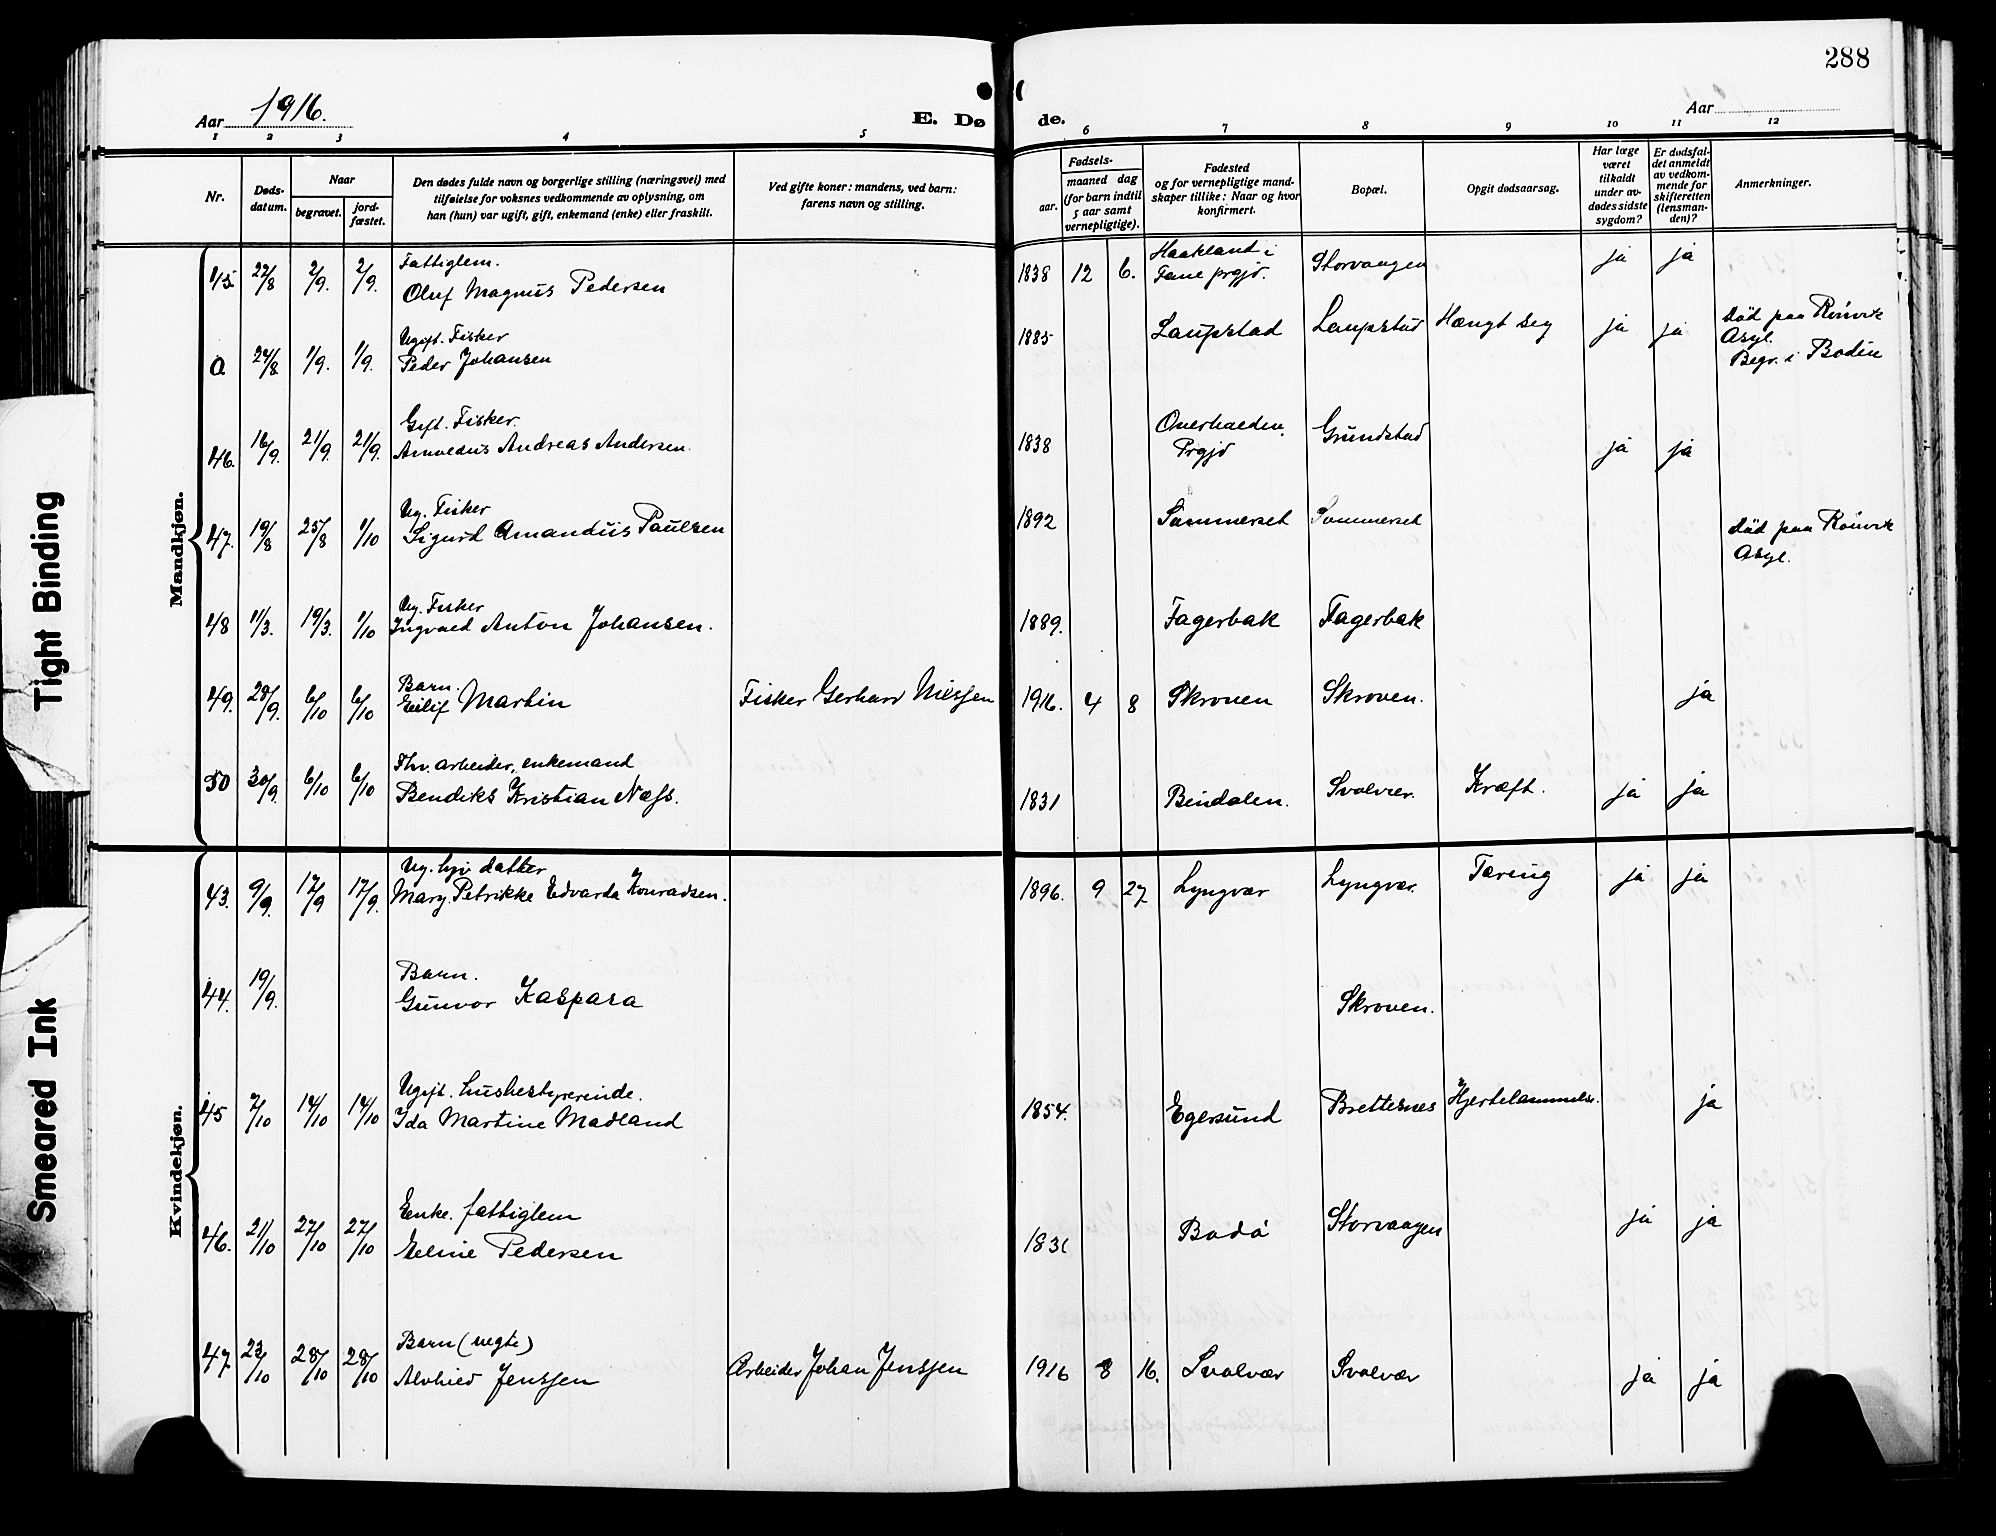 288
Aar 1916.
E. Dø
de.
Aar
1 2 3 4 5 6 7 8 9 10 11 12
Nr.
Døds-
datum.
Naar
begravet.
jord-
fæstet.
Den dødes fulde navn og borgerlige stilling (næringsvei) med
tilføielse for voksnes vedkommende av oplysning, om
han (hun) var ugift, gift, enkemand (enke) eller fraskilt.
Ved gifte koner: mandens, ved barn:
farens navn og stilling.
Fødsels-
aar.
maaned dag
(for barn indtil
5 aar samt
vernepligtige).
Fødested
og for vernepligtige mand-
skaper tillike: Naar og hvor
konfirmert.
Bopæl.
Opgit dødsaarsag.
Har læge
været
tilkaldt
under av-
dødes sidste
sygdom?
Er dødsfal-
det anmeldt
av vedkom-
mende for
skifteretten
(lensman-
den)?
Anmerkninger.
Mandkjøn.
45. 22/8 2/9. 2/9. Fattiglem.
Oluf Magnus Pedersen
1838 12 6. Haakland i
Fane prgjd. Storvaagen ja ja
a 24/8 1/9. 1/9. Ugift. Fisker
Peder Johansen
1885 Laupstad Laupstad Hængt seg ja ja Død paa Rönvik
Asyl.
Begr. i Bodin
46. 16/9. 21/9. 21/9. Gift. Fisker.
Amvedus Andreas Andersen.
1838 Overhalden
Prgjd Grundstad ja ja
47. 19/8 25/8 1/10 Ug. Fisker
Sigurd Amandus Paulsen
1892 Sommerset Sommerset Död paa Rönvik
Asyl.
48 11/3. 19/3. 1/10 Ug. Fisker
Ingvald Anton Johansen.
1889. Fagerbak Fagerbak
49. 28/9. 6/10 6/10 Barn.
Eilif Martin Fisker Gerhard Nilssen
1916. 4 8 Skroven Skroven. ja
50 30/9. 6/10 6/10 Fhv. arbeider, enkemand
Bendiks Kristian Næss.
1831 Bindalen. Svolvær. Kræft. ja ja
Kvindekjøn.
43. 9/9. 17/9 17/9. Ug. hjv datter
Mary Petrikke Edvarda Konradsen.
1896. 9 27 Lyngvær Lyngvær. Tæring ja ja
44. 19/9. Barn.
Gunvor Kaspara
Skroven.
45 7/10 14/10 14/10 Ugift. husbestyrerinde.
Ida Martine Madland
1854. Egersund Brettesnes Hjertelammelse. ja
46. 21/10 27/10 27/10 Enke. fattiglem
Eline Pedersen
1831 Bodö Storvaagen ja ja
47 23/10 28/10 28/10 Barn (uegte)
Alvhild Jenssen Arbeider Johan Jenssen
1916 8 16. Svolvær Svolvær ja ja
Tight Binding
Smeared Ink